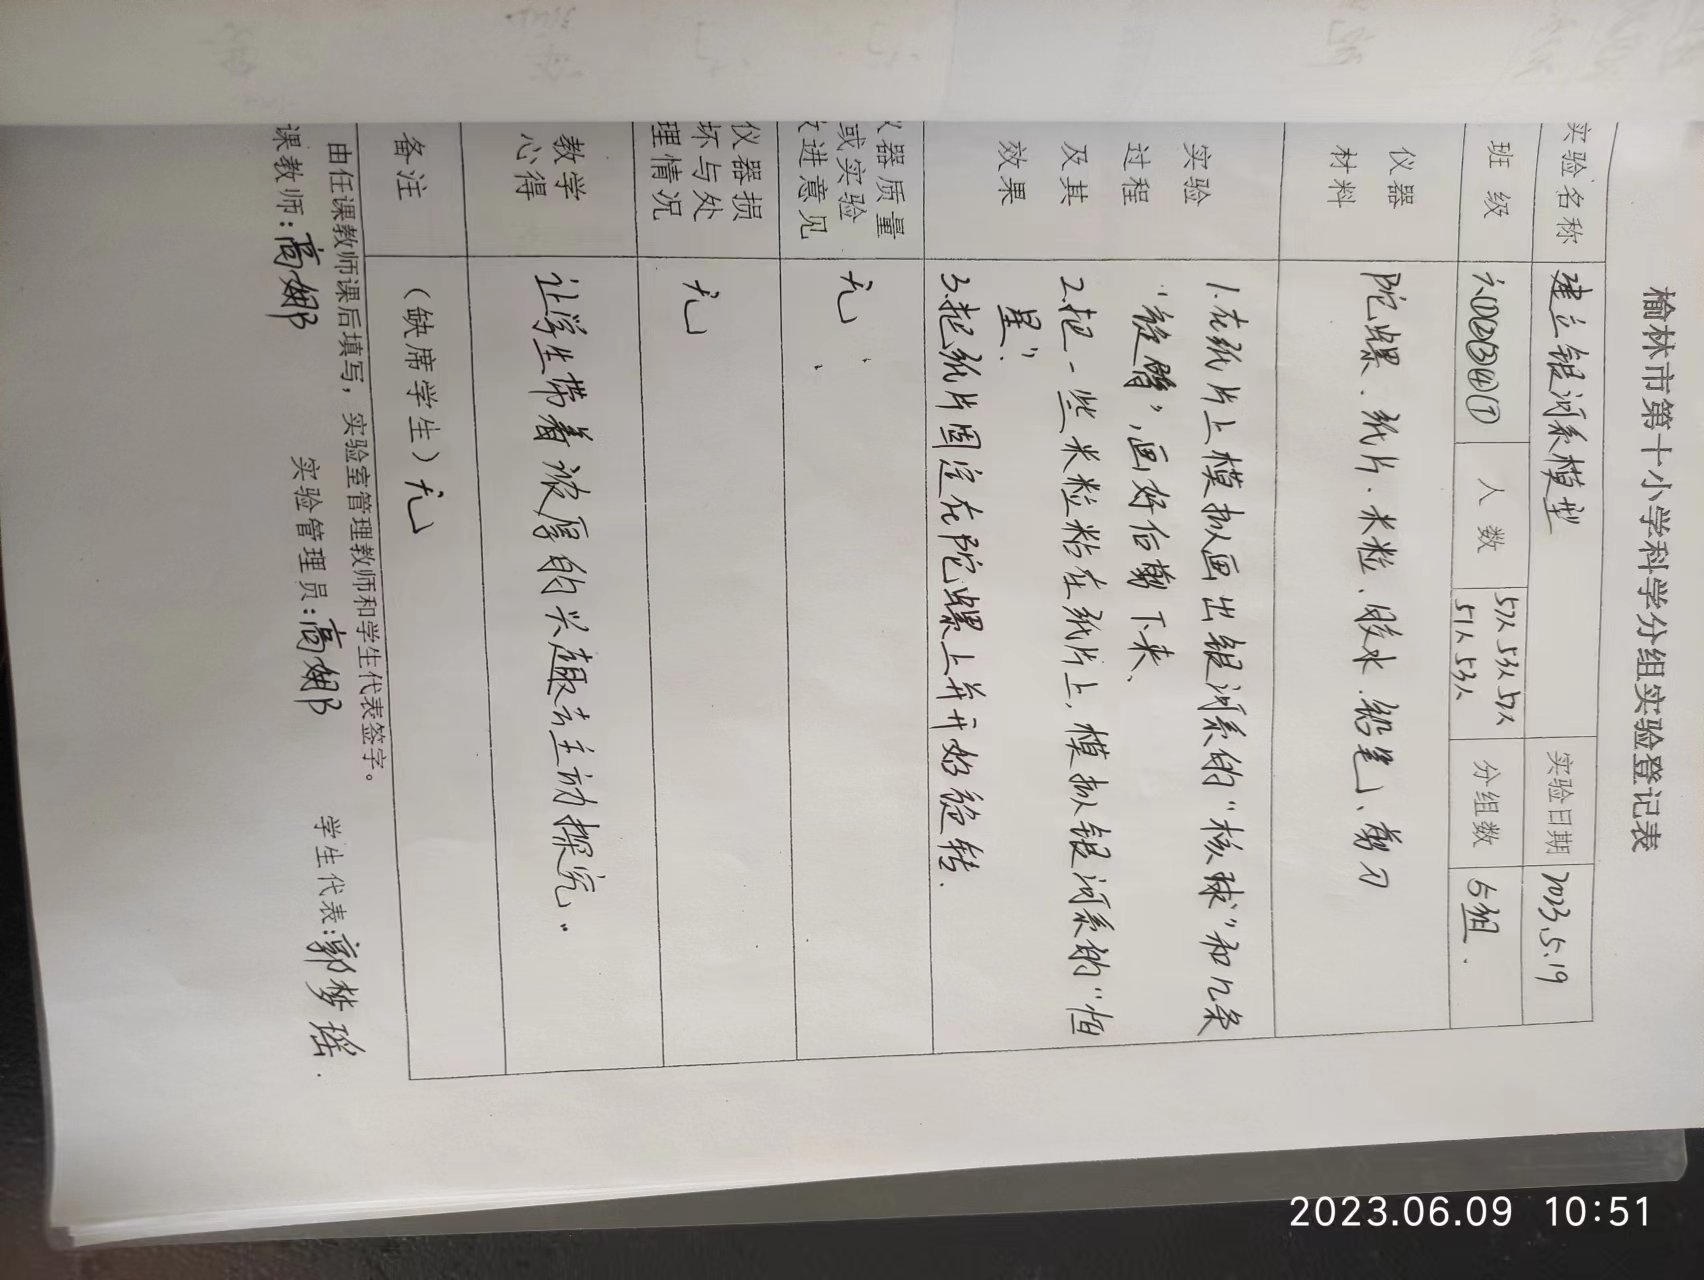 榆林市第十小学科学分组实验登记表
实验名称 建立银河系模型 实验日期 2023.5.19
班级 六①②③④⑦ 人数 57人 53人 57人 分组数 5组.
51人 53人
仪器
材料
陀螺、纸片、米粒、胶水、铅笔、剪刀
实验
过程
及其
效果
1.在纸片上模拟画出银河系的“核球”和几条
“旋臂”,画好后剪下来、
2.把一些米粒粘在纸片上,模拟银河系的“恒
星”.
3.把纸片固定在陀螺上并开始旋转.
仪器质量
或实验
改进意见
无
仪器损
坏与处
理情况
无
教学
心得
让学生带着浓厚的兴趣去主动探究。
备注
(缺席学生)无
由任课教师课后填写，实验室管理教师和学生代表签字。
课教师:高娜 实验管理员:高娜 学生代表:郭梦瑶.
2023.06.09 10:51